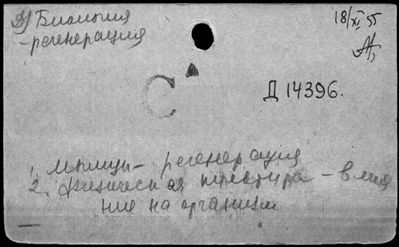 3) Биология
- регенерация
18/XI 55
С
Д 14396.
1. Мышцы - регенерация
2. Физическая культура - влия
ние на организм